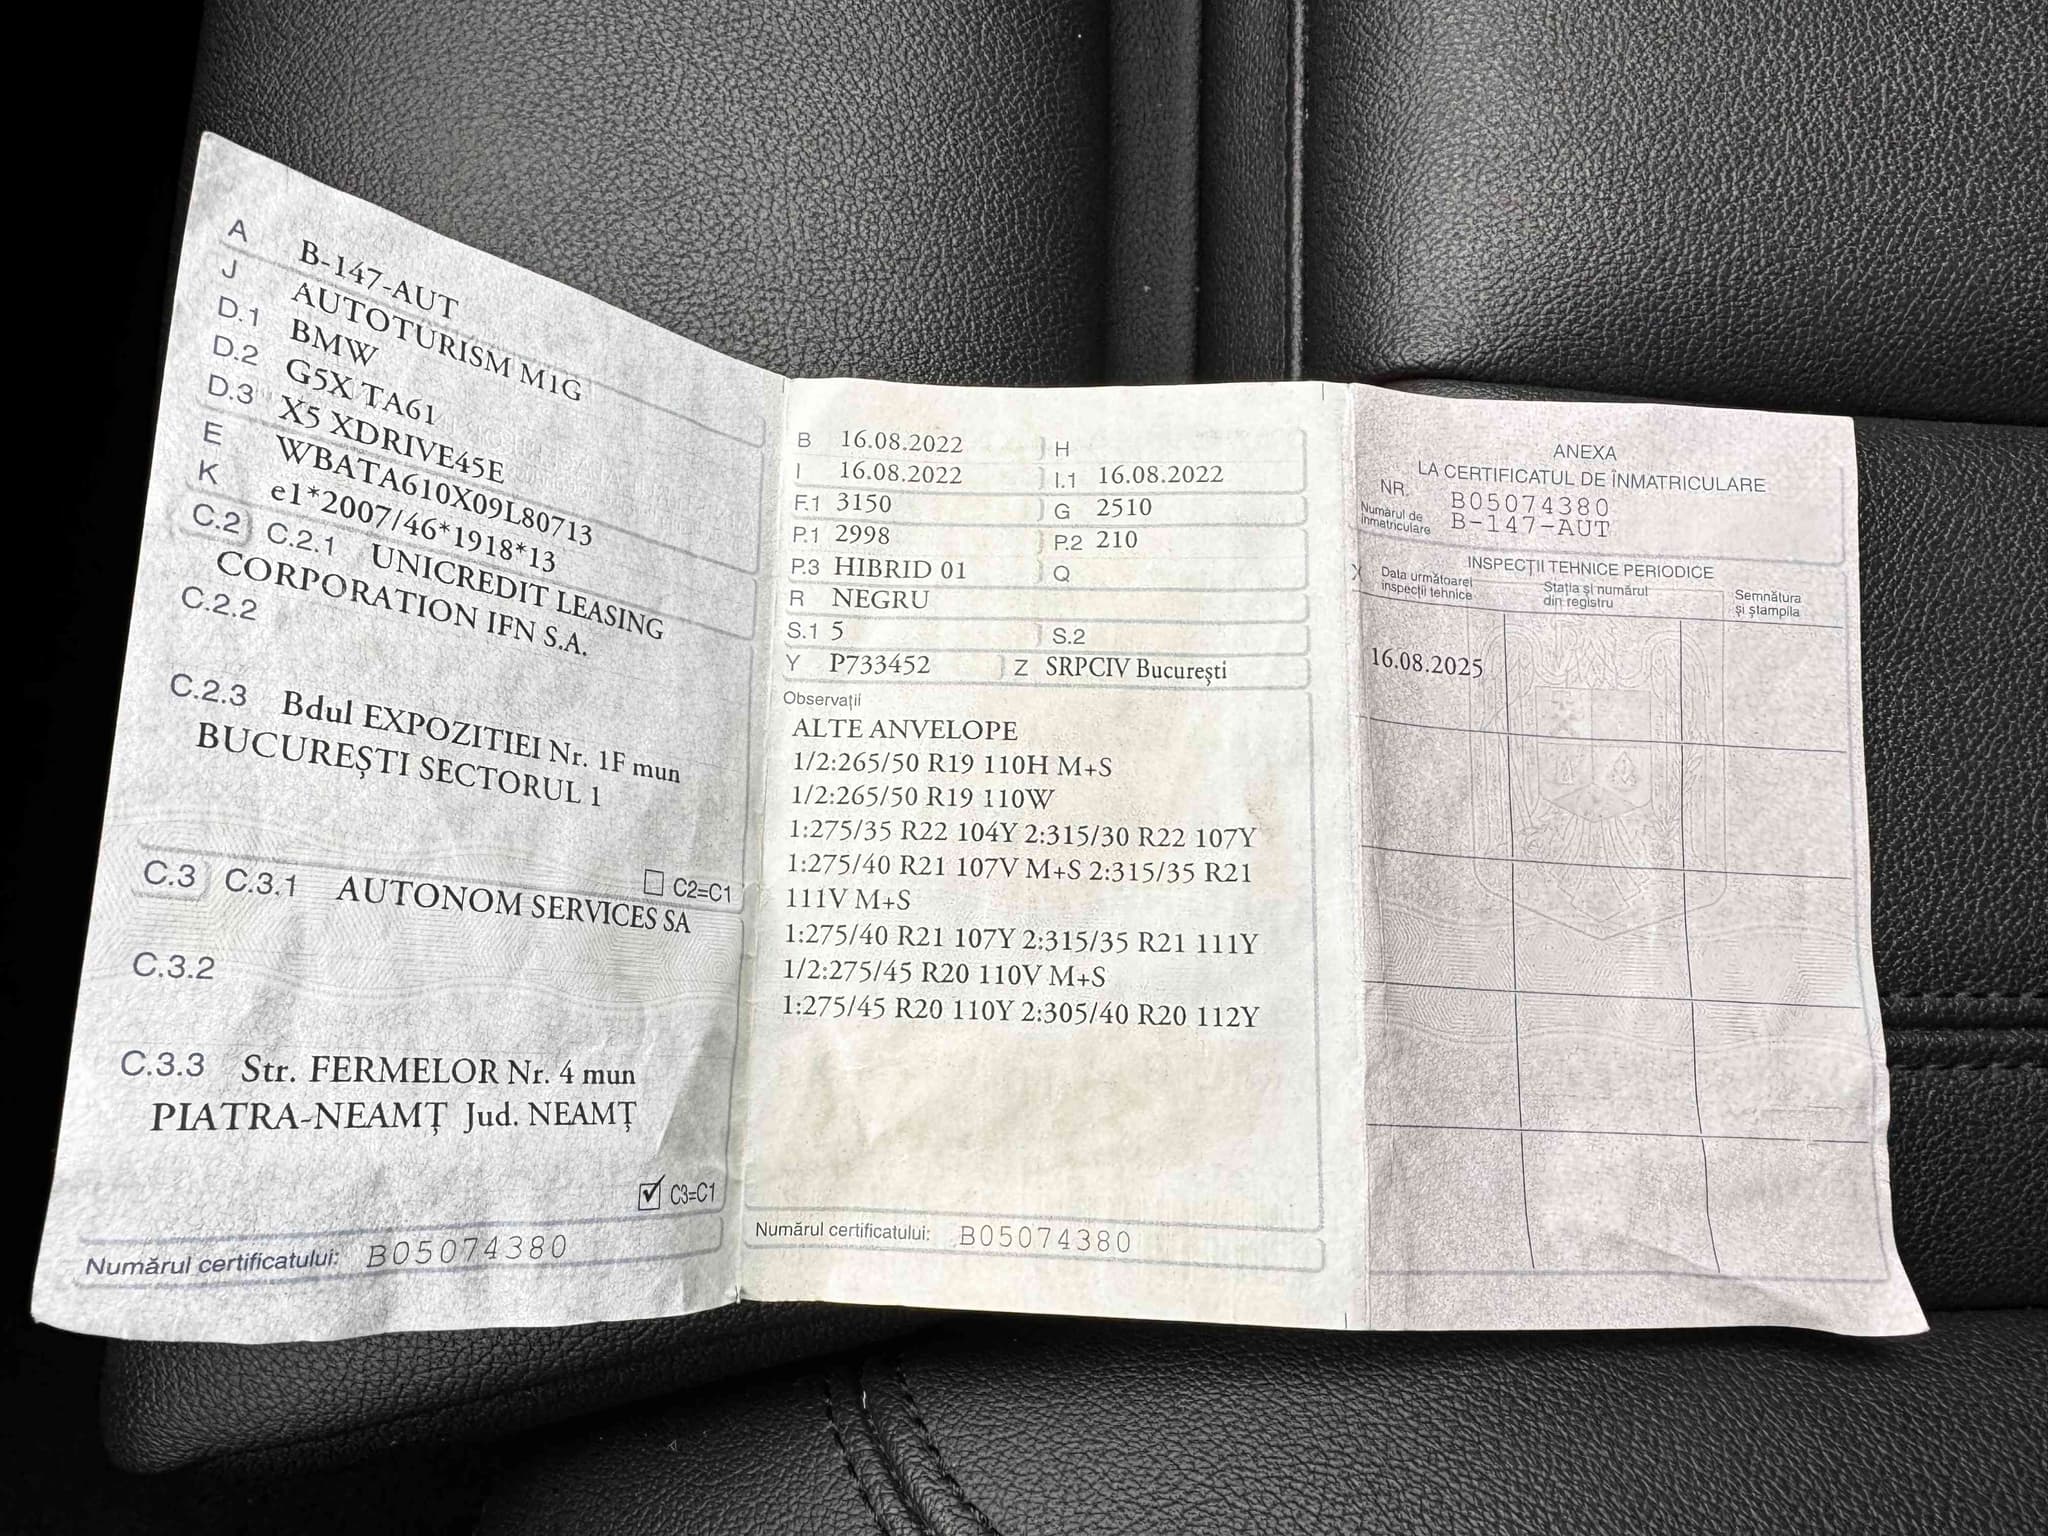 A B-147-AUT
J AUTOTURISM M1G
D.1 BMW
D.2 G5X TA61
D.3 X5 XDRIVE45E
E WBATA610X09L80713
K e1*2007/46*1918*13
C.2 C.2.1 UNICREDIT LEASING
CORPORATION IFN S.A.
C.2.2
C.2.3 Bdul EXPOZITIEI Nr. 1F mun
BUCUREȘTI SECTORUL 1
☐ C2=C1
C.3 C.3.1 AUTONOM SERVICES SA
C.3.2
C.3.3 Str. FERMELOR Nr. 4 mun
PIATRA-NEAMȚ Jud. NEAMȚ
☑ C3=C1
Numărul certificatului: B05074380
B 16.08.2022 H
I 16.08.2022 I.1 16.08.2022
F.1 3150 G 2510
P.1 2998 P.2 210
P.3 HIBRID 01 Q
R NEGRU
S.1 5 S.2
Y P733452 Z SRPCIV București
Observații
ALTE ANVELOPE
1/2:265/50 R19 110H M+S
1/2:265/50 R19 110W
1:275/35 R22 104Y 2:315/30 R22 107Y
1:275/40 R21 107V M+S 2:315/35 R21
111V M+S
1:275/40 R21 107Y 2:315/35 R21 111Y
1/2:275/45 R20 110V M+S
1:275/45 R20 110Y 2:305/40 R20 112Y
Numărul certificatului: B05074380
ANEXA
LA CERTIFICATUL DE ÎNMATRICULARE
NR. B05074380
Numărul de
înmatriculare B-147-AUT
INSPECȚII TEHNICE PERIODICE
X Data următoarei
inspecții tehnice
Stația și numărul
din registru
Semnătura
și ștampila
16.08.2025